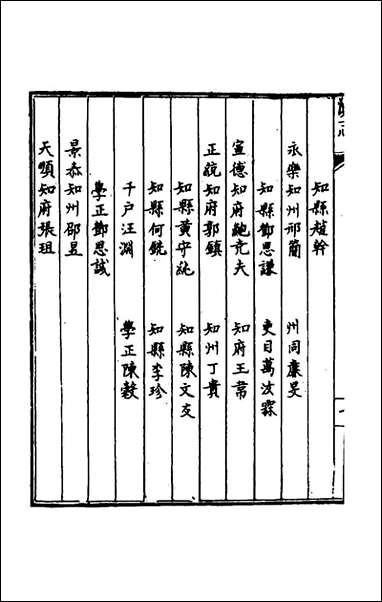 知縣趙幹
永樂知州祁簡　州同廉旻
知縣鄧思謙　吏目萬汝霖
宣德知府鮑克夫　知府王常
正統知府郭鎮　知州丁貴
知縣黃守純　知縣陳文友
知縣何銑　知縣李珍
千户汪淵　學正陳毅
學正鄧思誠
景泰知州邵昱
天順知府張珇